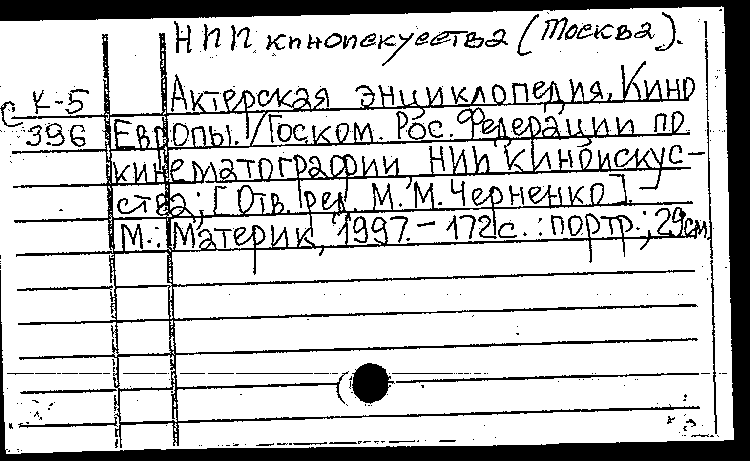 НИИ киноискусства (Москва).
С К-5 Актерская энциклопедия. Кино
396 Европы. / Госком. Рос. Федерации по
кинематографии, НИИ киноискус-
ства; [Отв. ред. М. М. Черненко]. -
М.: Материк, 1997. - 172 с. : портр.; 29см